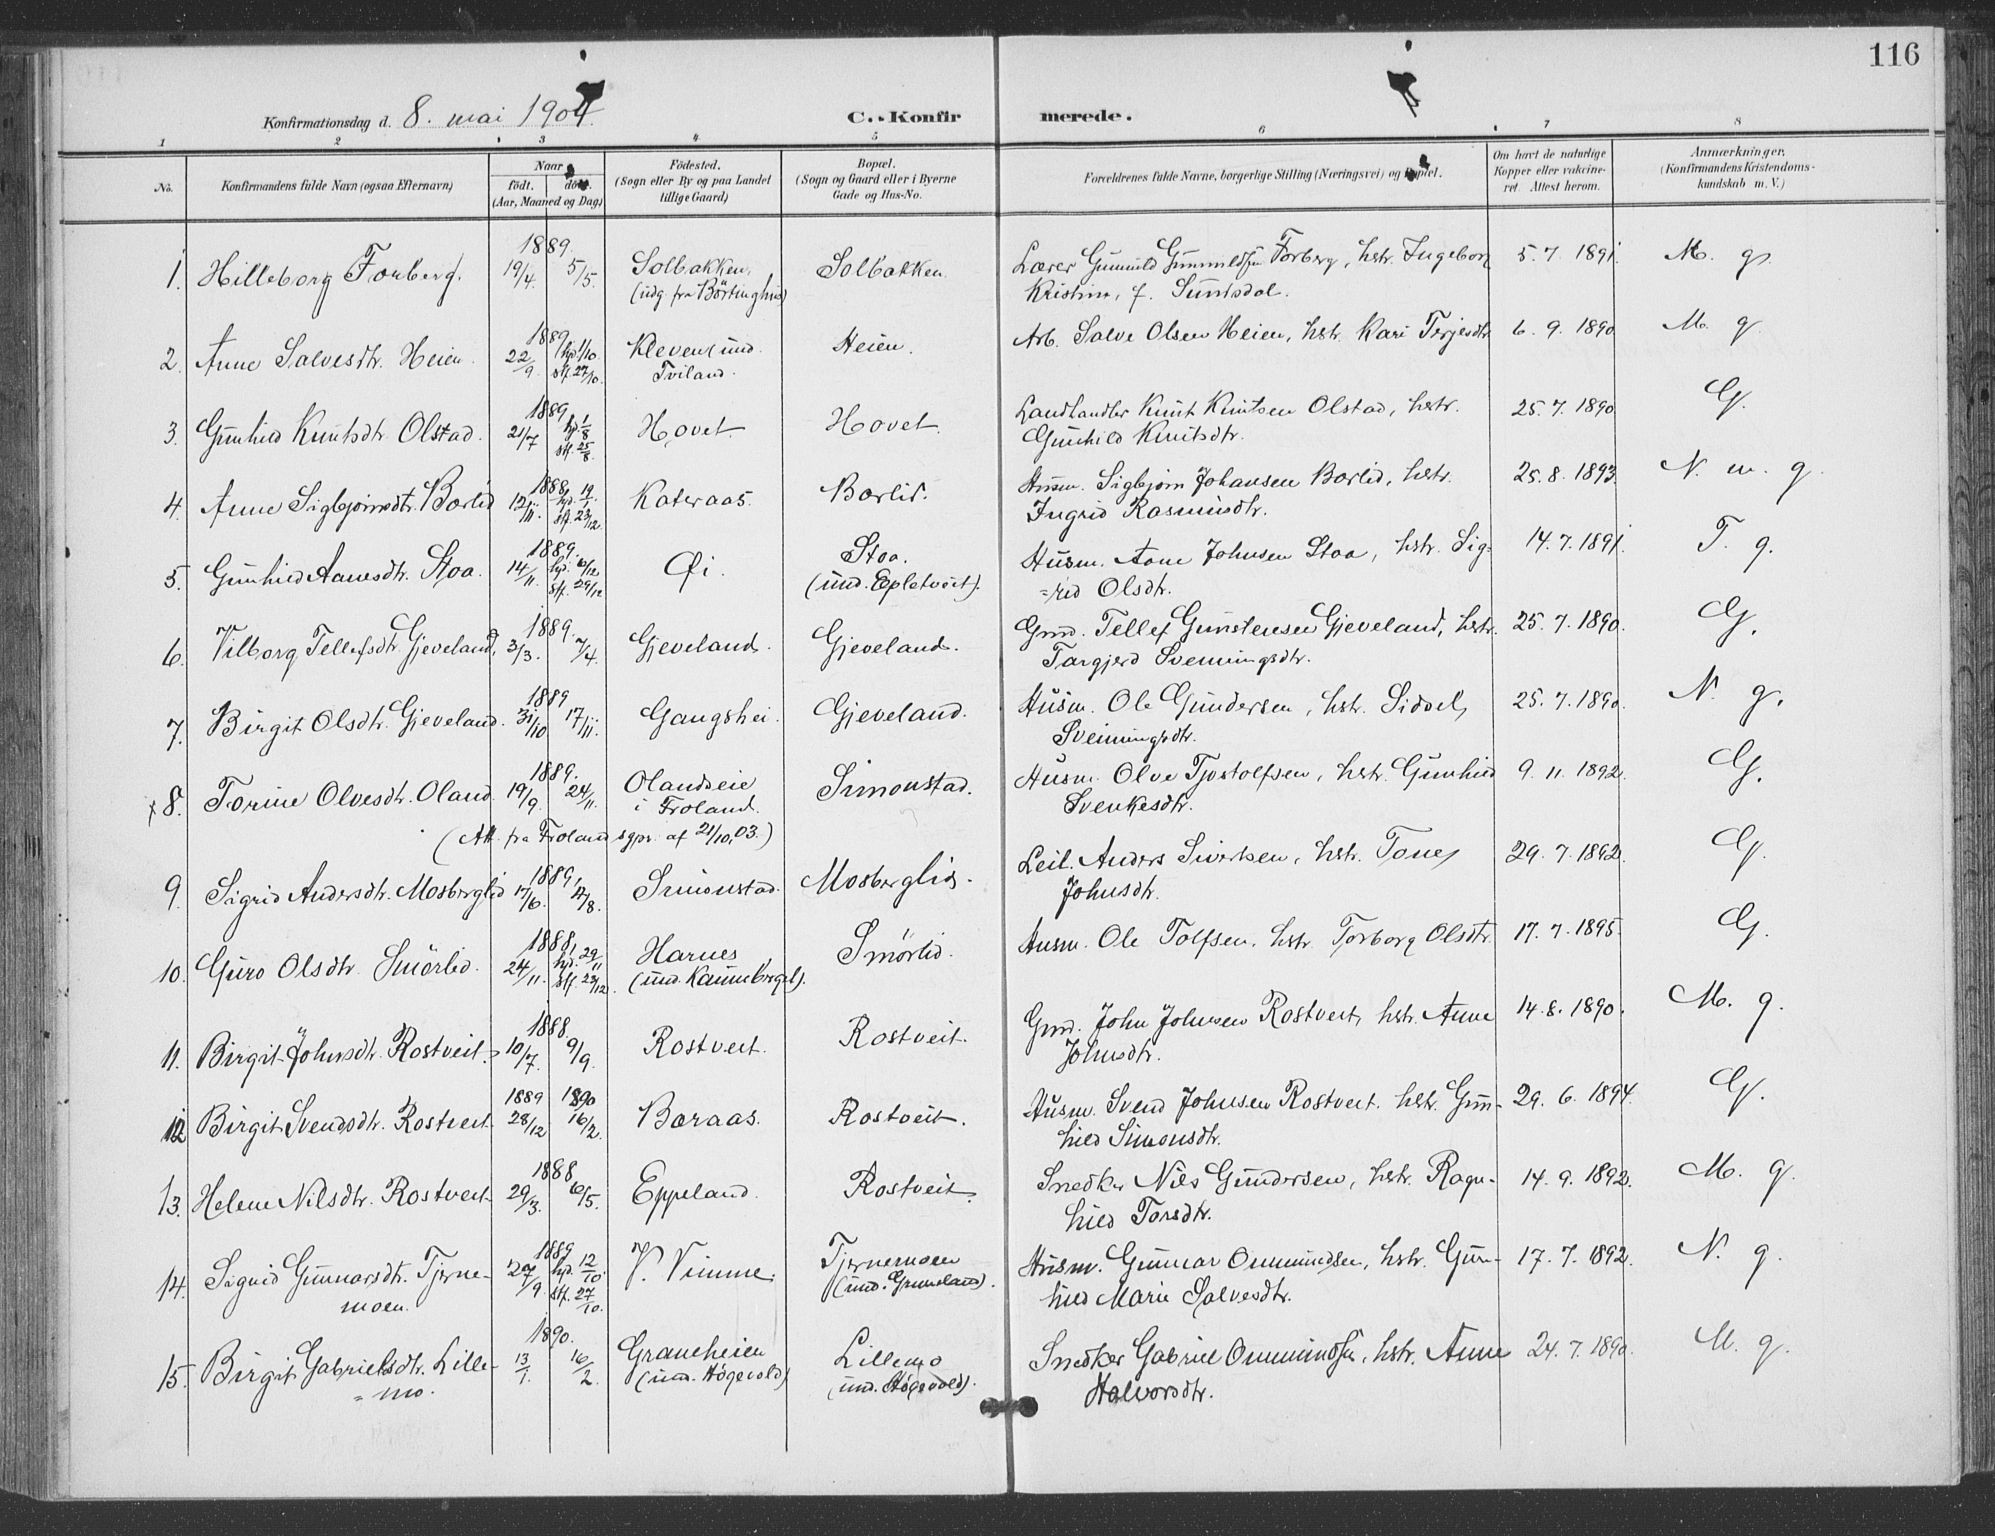 116
Konfirmationsdag d. 8. mai 1904. C. Konfirmerede.
1 2 3 4 5 6 7 8
No. Konfirmandens fulde Navn (ogsaa Efternavn) Naar født. døbt. (Aar, Maaned og Dag) Fødested. (Sogn eller By og paa Landet tillige Gaard) Bopæl. (Sogn og Gaard eller i Byerne Gade og Hus-No. Forældrenes fulde Navne, borgerlige Stilling (Næringsvei) og Bopæl. Om havt de naturlige Kopper eller vakcineret. Attest herom. Anmærkninger, (Konfirmandens Kristendomskundskab m. V.)
1. Hilleborg Forberg. 1889. 19/4. 5/5. Solbakken. (udg. fra Börtinghus) Solbakken. Lærer Gunnuld Gunnuldsen Forberg, hstr. Ingeborg 5. 7. 1891. M. g.
Kristine, f. Suntsdal.
2. Anne Salvesdtr. Heien. 1889 22/9. hjd. 1/10 stf. 27/10. Kleven (und. Tviland. Heien. Arb. Salve Olsen Heien, hstr. Kari Terjesdtr. 6. 9. 1890. M. g.
3. Gunhild Knutsdtr. Olstad. 1889 21/7 hjd. 1/8 stf. 25/8. Hovet. Hovet. Landhandler Knut Knutsen Olstad, hstr. 25. 7. 1890. G.
Gunhild Knutsdtr.
4. Anne Sigbjørnsdtr. Borlid 1888, 12/11. stf. 23/12. Kateraas. Borlid. Husm. Sigbjørn Johansen Borlid, hstr. 25. 8. 1893. N. m. g.
Ingrid Rasmusdtr.
5. Gunhild Aanesdtr. Stoa. 1889. 14/11. hjd. 6/12 stf. 29/12 Øi. Stoa. (und. Epletvedt). Husm. Aane Johnsen Stoa, hstr. Sig= 14. 7. 1891. T. g.
=rid Olsdtr.
6. Vilborg Tellefsdtr. Gjeveland, 1889. 3/3. 7/4. Gjeveland. Gjeveland. Grmd. Tellef Gunstensen Gjeveland, hstr. 25. 7. 1890. G.
Targjerd Sveinungsdtr.
7. Birgit Olsdtr. Gjeveland. 1889 31/10 17/11. Gangshei. Gjeveland. Husm. Ole Gundersen, hstr. Siddel, 25. 7. 1890. N. g.
Sveinungsdtr.
8. Torine Olvesdtr. Oland. 1889. 19/9. 24/11. Olandseie i Froland. Simonstad. Husm. Olve Tjostolfsen, hstr. Gunhild 9. 11. 1892. G.
Svenkesdtr.
(Att. fra Froland sgpr. af 21/10, 03.)
9. Sigrid Andersdtr. Mosberglid 1889, 17/6. 4/8. Simonstad. Mosberglid. Leil. Anders Sivertsen, hstr. Tone 29. 7. 1892. G.
Johnsdtr.
10. Guro Olsdtr. Smörlid. 1888, 24/11. hjd. 29/11 stf. 23/12. Harnes (und. Kaunebrget). Smörlid. Husm. Ole Tolfsen, hstr. Torborg Olsdtr. 17. 7. 1895. G.
11. Birgit Johnsdtr. Rostveit. 1888 10/7. 9/9. Rostveit. Rostveit. Grmd. John Johnsen Rostveit, hstr. Anne 14. 8. 1890. M. g.
Johnsdtr.
12 Birgit Svendsdtr. Rostveit 1889 28/12 1890 16/2. Baraas. Rostveit. Husm. Svend Johnsen Rostveit. hstr. Gun- 29. 6. 1894. G.
hild Simonsdtr.
13. Helene Nilsdtr. Rostveit 1888 29/3. 6/5. Eppeland. Rostveit. Snedker Nils Gundersen, hstr. Ragn- 14. 9. 1892. M. g.
hild Torsdtr.
14. Sigrid Gunnarsdtr. Tjerne-moen. 1889 27/9. hjd. 12/10. stf. 27/10. V. Vimme. Tjernemoen (und. Grimeland). Husm. Gunnar Ommundsen, hstr. Gun- 17. 7. 1892. N. g.
hild Marie Salvesdtr.
15. Birgit Gabrielsdtr. Lille-=mo. 1890. 13/1. 16/2. Graneheien (und. Högevold) Lillemo (und. Högevold). Snedker Gabriel Ommundsen, hstr. Anne 24. 7. 1890. M. g.
Halvorsdtr.